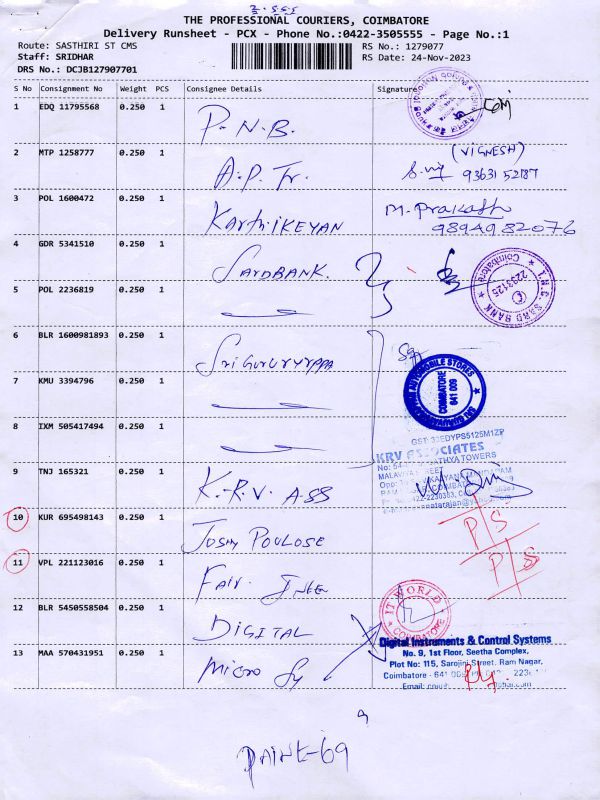 THE PROFESSIONAL COURIERS, COIMBATORE
Delivery Runsheet - PCX - Phone No.:0422-3505555 - Page No.:1
Route: SASTHIRI ST CMS
RS No.: 1279077
Staff: SRIDHAR
RS Date: 24-Nov-2023
DRS No.: DCJB127907701
S No Consignment No Weight PCS Consignee Details Signature
1 EDQ 11795568 0.250 1 P.N.B.
2 MTP 1258777 0.250 1 A.P. Tr. (VIGNESH)
93631 52187
3 POL 1600472 0.250 1 KARTHIKEYAN M. Prakash
9894982076
4 GDR 5341510 0.250 1 SARDBANK.
I.H.G. SARD BANK
2233125
Coimbatore
5 POL 2236819 0.250 1
6 BLR 1600981893 0.250 1
AUTOMOBILE STORES
COIMBATORE
641 009
7 KMU 3394796 0.250 1
8 IXM 505417494 0.250 1
KRV ASSOCIATES
SATHYA TOWERS
9 TNJ 165321 0.250 1 K.R.V. ASS
10 KUR 695498143 0.250 1 JOSMY POULOSE P/S
11 VPL 221123016 0.250 1 FAIR P/S
12 BLR 5450558504 0.250 1 DIGITAL
IT WORLD
COIMBATORE
13 MAA 570431951 0.250 1 MICRO
Digital Instruments & Control Systems
No. 9, 1st Floor, Seetha Complex,
Plot No: 115, Sarojini Street. Ram Nagar,
Coimbatore - 641 009
Email: